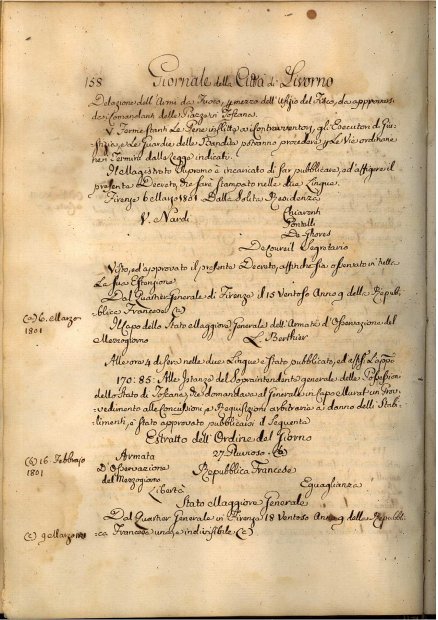 158 Giornale della Città di Livorno
Delazione dell'Armi da Fuoco, per mezzo dell'Ufizio del Fisco, da approvarsi
da Comandanti delle Piazze in Toscana.
V. Ferme stanti Le Pene inflitte a i Contravventori, gli Esecutori di Giu-
stizia, e Le Guardie delle Bandite potranno procedere per Le Vie ordinarie
nei Termini dalla Legge indicati.
Il Magistrato Supremo è incaricato di far pubblicare, ed affigere il
presente Decreto, che sarà stampato nelle due Lingue.
Firenze 6 Marzo 1801 Dalla Solita Residenza
Chiarenti
V. Nardi
Pontelli
De-Ghores
De Coureil Segretario
Visto, ed approvato il presente Decreto, affinchè sia osservato in tutta
La sua Estensione
Dal Quartier Generale di Firenze Il 15 Ventoso Anno 9 della Repub-
blica Francese (a)
(a) 6. Marzo
1801
Il Capo dello Stato Maggiore Generale dell'Armata d'Osservazione del
Mezzogiorno
L. Berthier
Alle ore 4 di sera nelle due Lingue è stato pubblicato, ed
170: 85: Alle Istanze del Sopraintendente generale delle Possessioni
dello Stato di Toscana, che domandava al Generale in Capo Murat un Prov-
vedimento alle Concussioni, e Requisizioni arbitrarie a danno delli Stabi-
limenti, è stato approvato, pubblicarsi il seguente
Estratto dell'Ordine del Giorno
27 Piovoso (b)
(b) 16 Febbrajo
1801
Armata
D'Osservazione
del Mezzogiorno
Repubblica Francese
Libertà
Eguaglianza
Stato Maggiore Generale
Dal Quartier Generale in Firenze 18 Ventoso Anno 9 della Repubbli-
ca Francese una, e indivisibile (c)
(c) 9 Marzo 1801